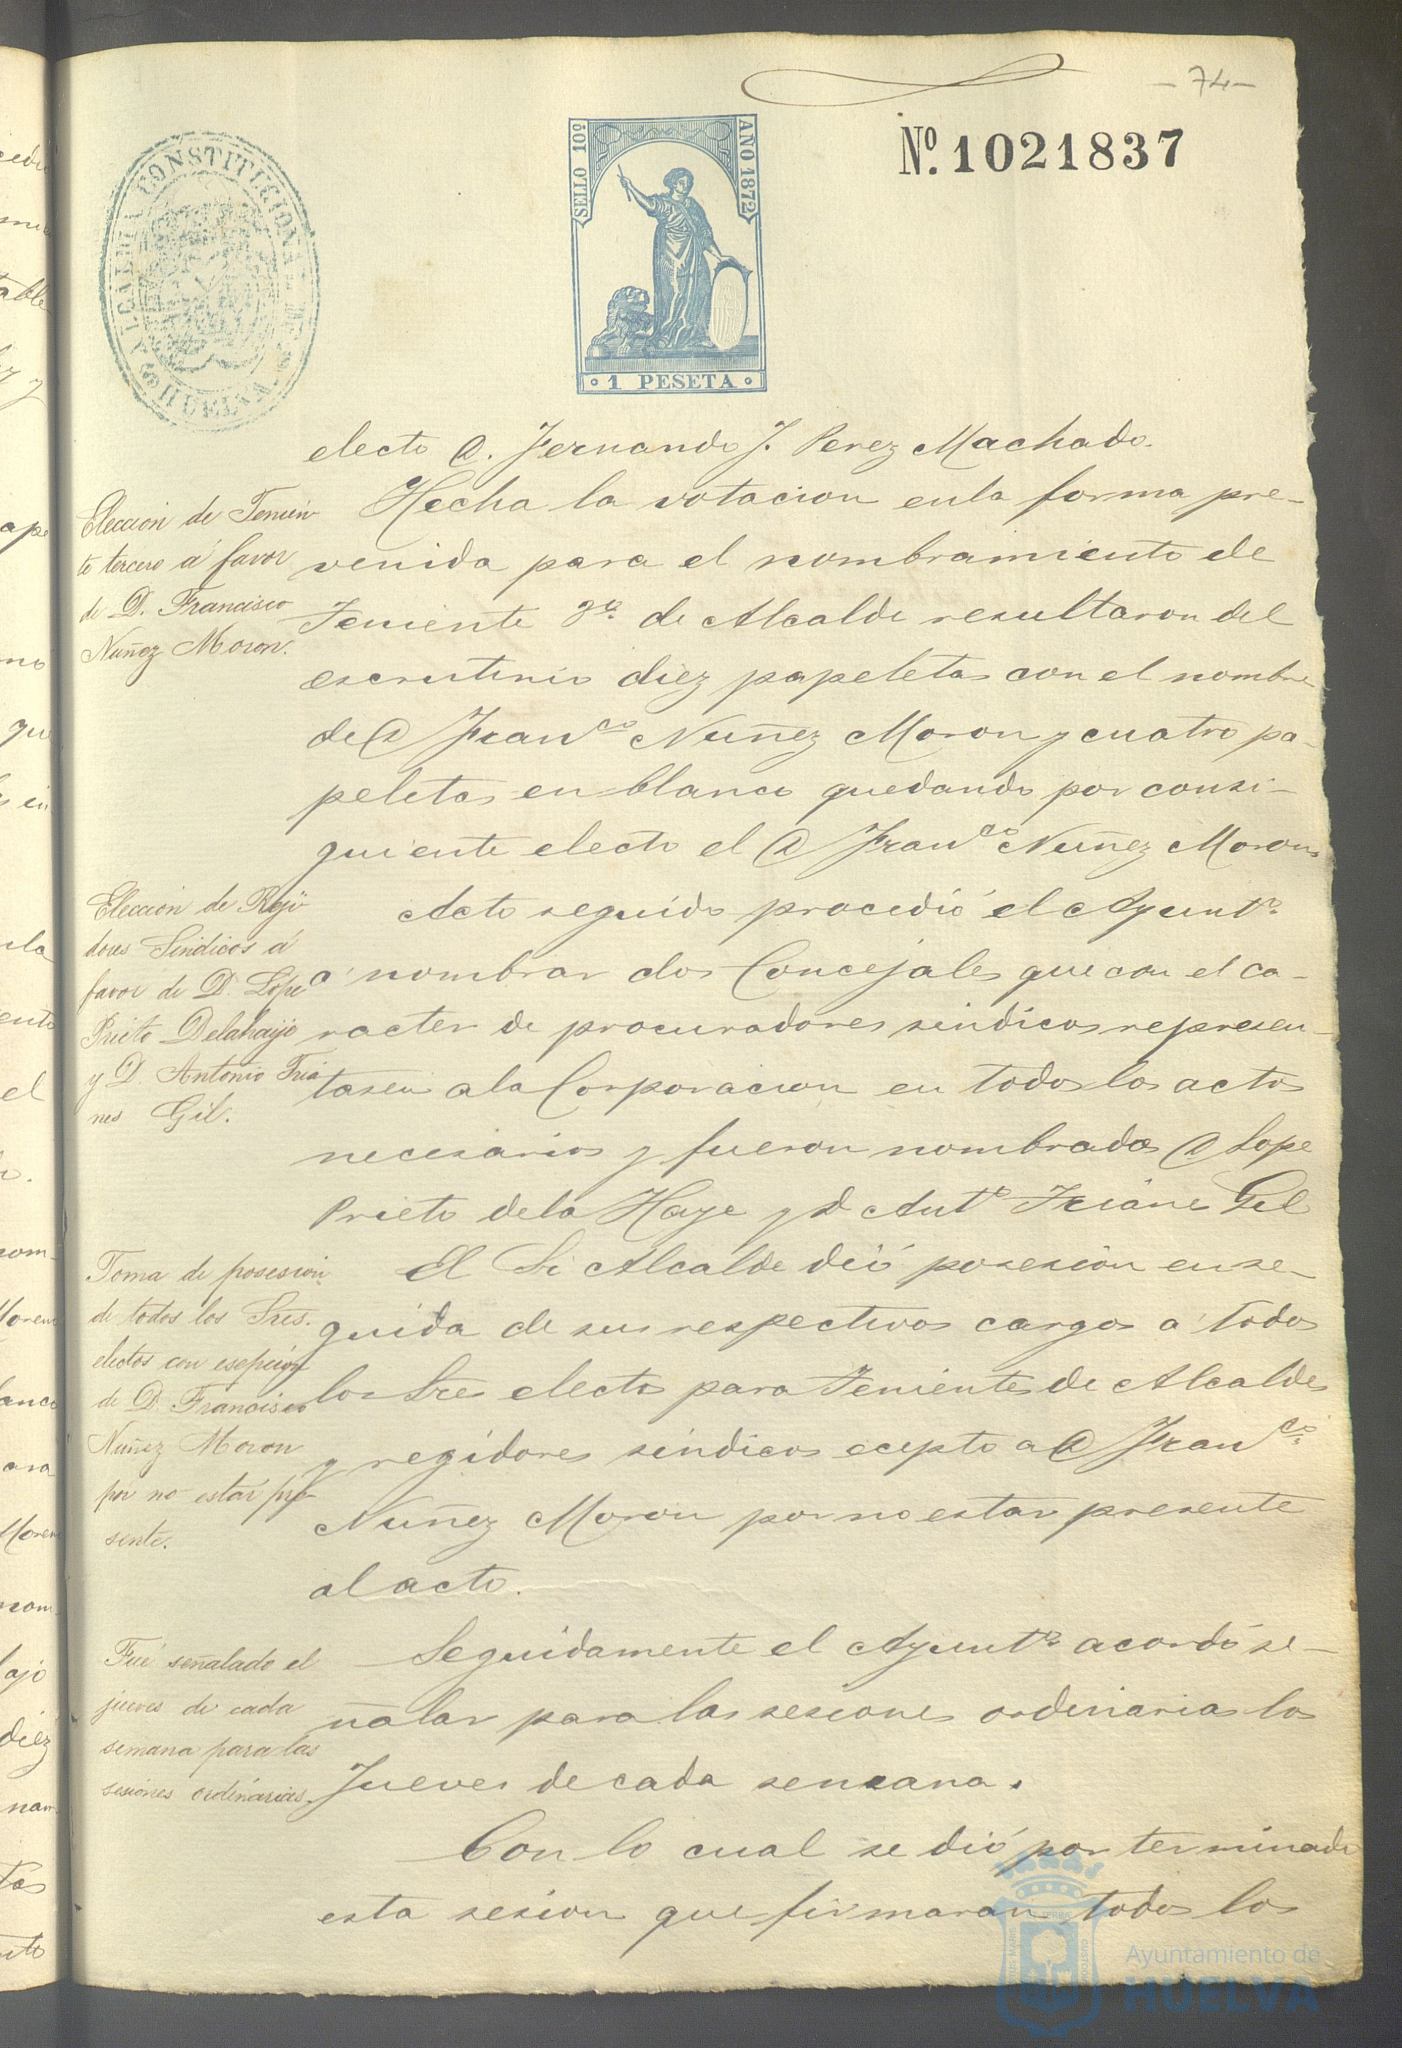 - 74 -
Nº. 1021837
SELLO 10º
AÑO 1872
1 PESETA
ALCALDIA CONSTITUCIONAL DE
HUELVA
electo D. Fernando J. Perez Machado.
Eleccion de Tenien
te tercero á favor
de D. Francisco
Nuñez Moron.
Hecha la votacion en la forma pre-
venida para el nombramiento de
Teniente 3º. de Alcalde resultaron del
escrutinio diez papeletas con el nombre
de D Franco. Nuñez Moron y cuatro pa-
peletas en blanco quedando por consi-
guiente electo el D Franco. Nuñez Moron
Eleccion de Reji
dores Sindicos á
favor de D. Lope
Prieto Delahaye
y D. Antonio Tria
nes Gil.
Acto seguido procedió el Ayunto.
á nombrar dos Concejales que con el ca-
racter de procuradores sindicos represen-
tasen a la Corporacion en todos los actos
necesarios y fueron nombrados D Lope
Prieto de la Haye y D Anto. Trianes Gil
Toma de posesion
de todos los Sres.
electos con esepción
de D. Francisco
Nuñez Moron
por no estar pre-
sente.
El Sr Alcalde dió posesion ense-
guida de sus respectivos cargos á todos
los Sres electos para Tenientes de Alcaldes
y regidores sindicos ecepto a D Franco.
Nuñez Moron por no estar presente
al acto.
Fué señalado el
jueves de cada
semana para las
sesiones ordinarias.
Seguidamente el Ayunto. acordó se-
ñalar para las sesiones ordinarias los
Jueves de cada semana.
Con lo cual se dió por terminada
esta sesion que firmaran todos los
Ayuntamiento de
HUELVA